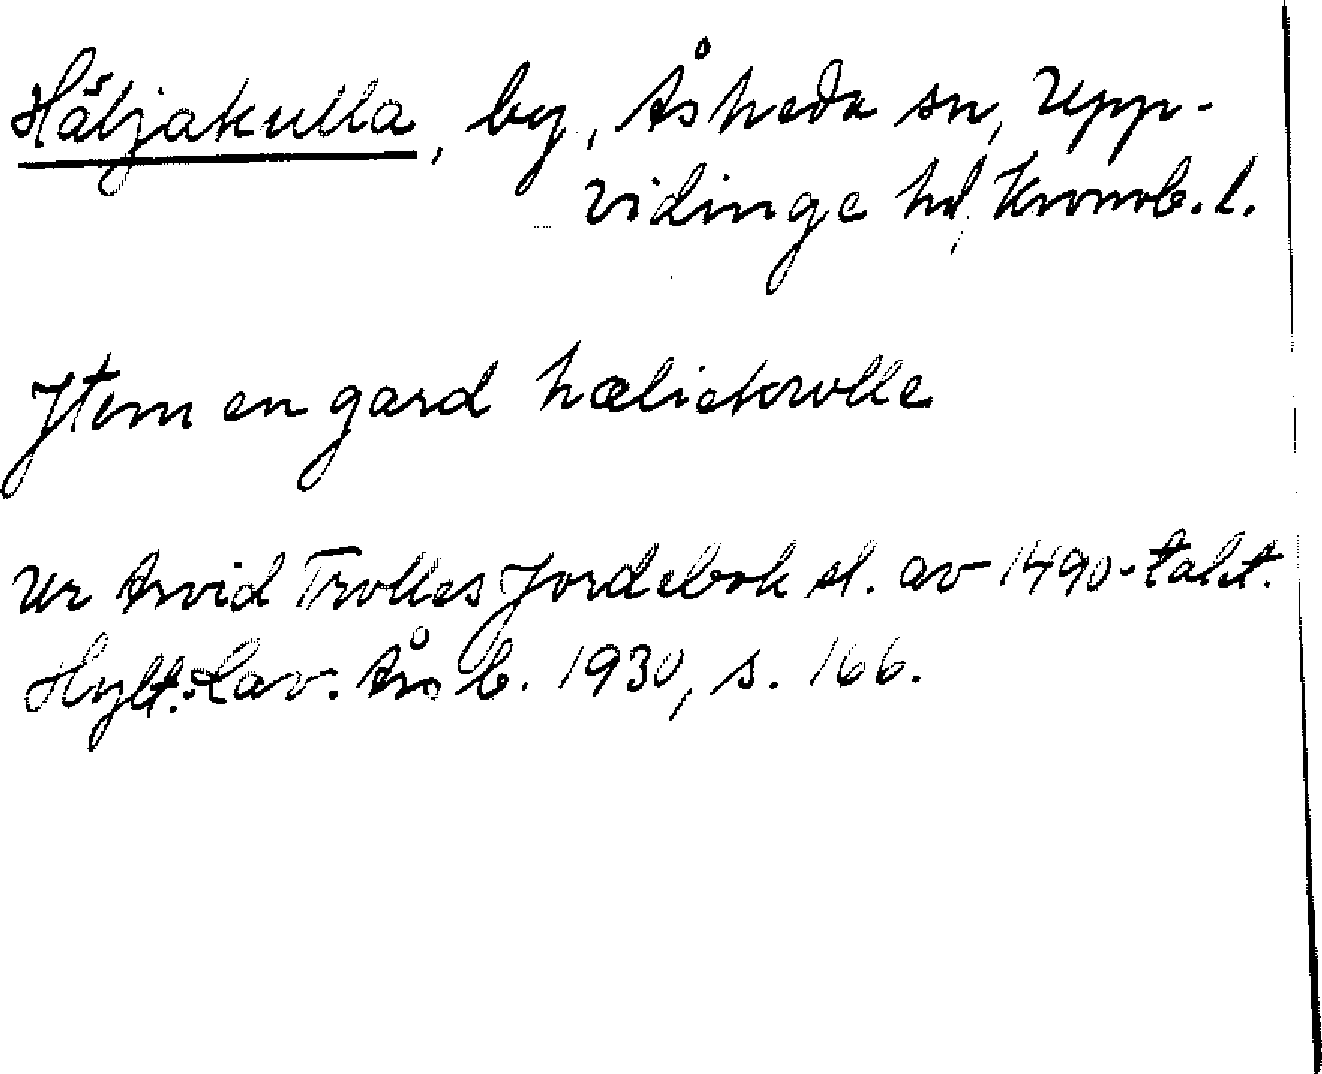 Häljakulla, by, Åsheda sn, Upp-
vidinge hd, Kronob. l.
Jtem en gard hæliekwlle
Ur Arvid Trolles Jordebok sl. av 1490-talet.
Hylt.-Cav. Årsb. 1930, s. 166.